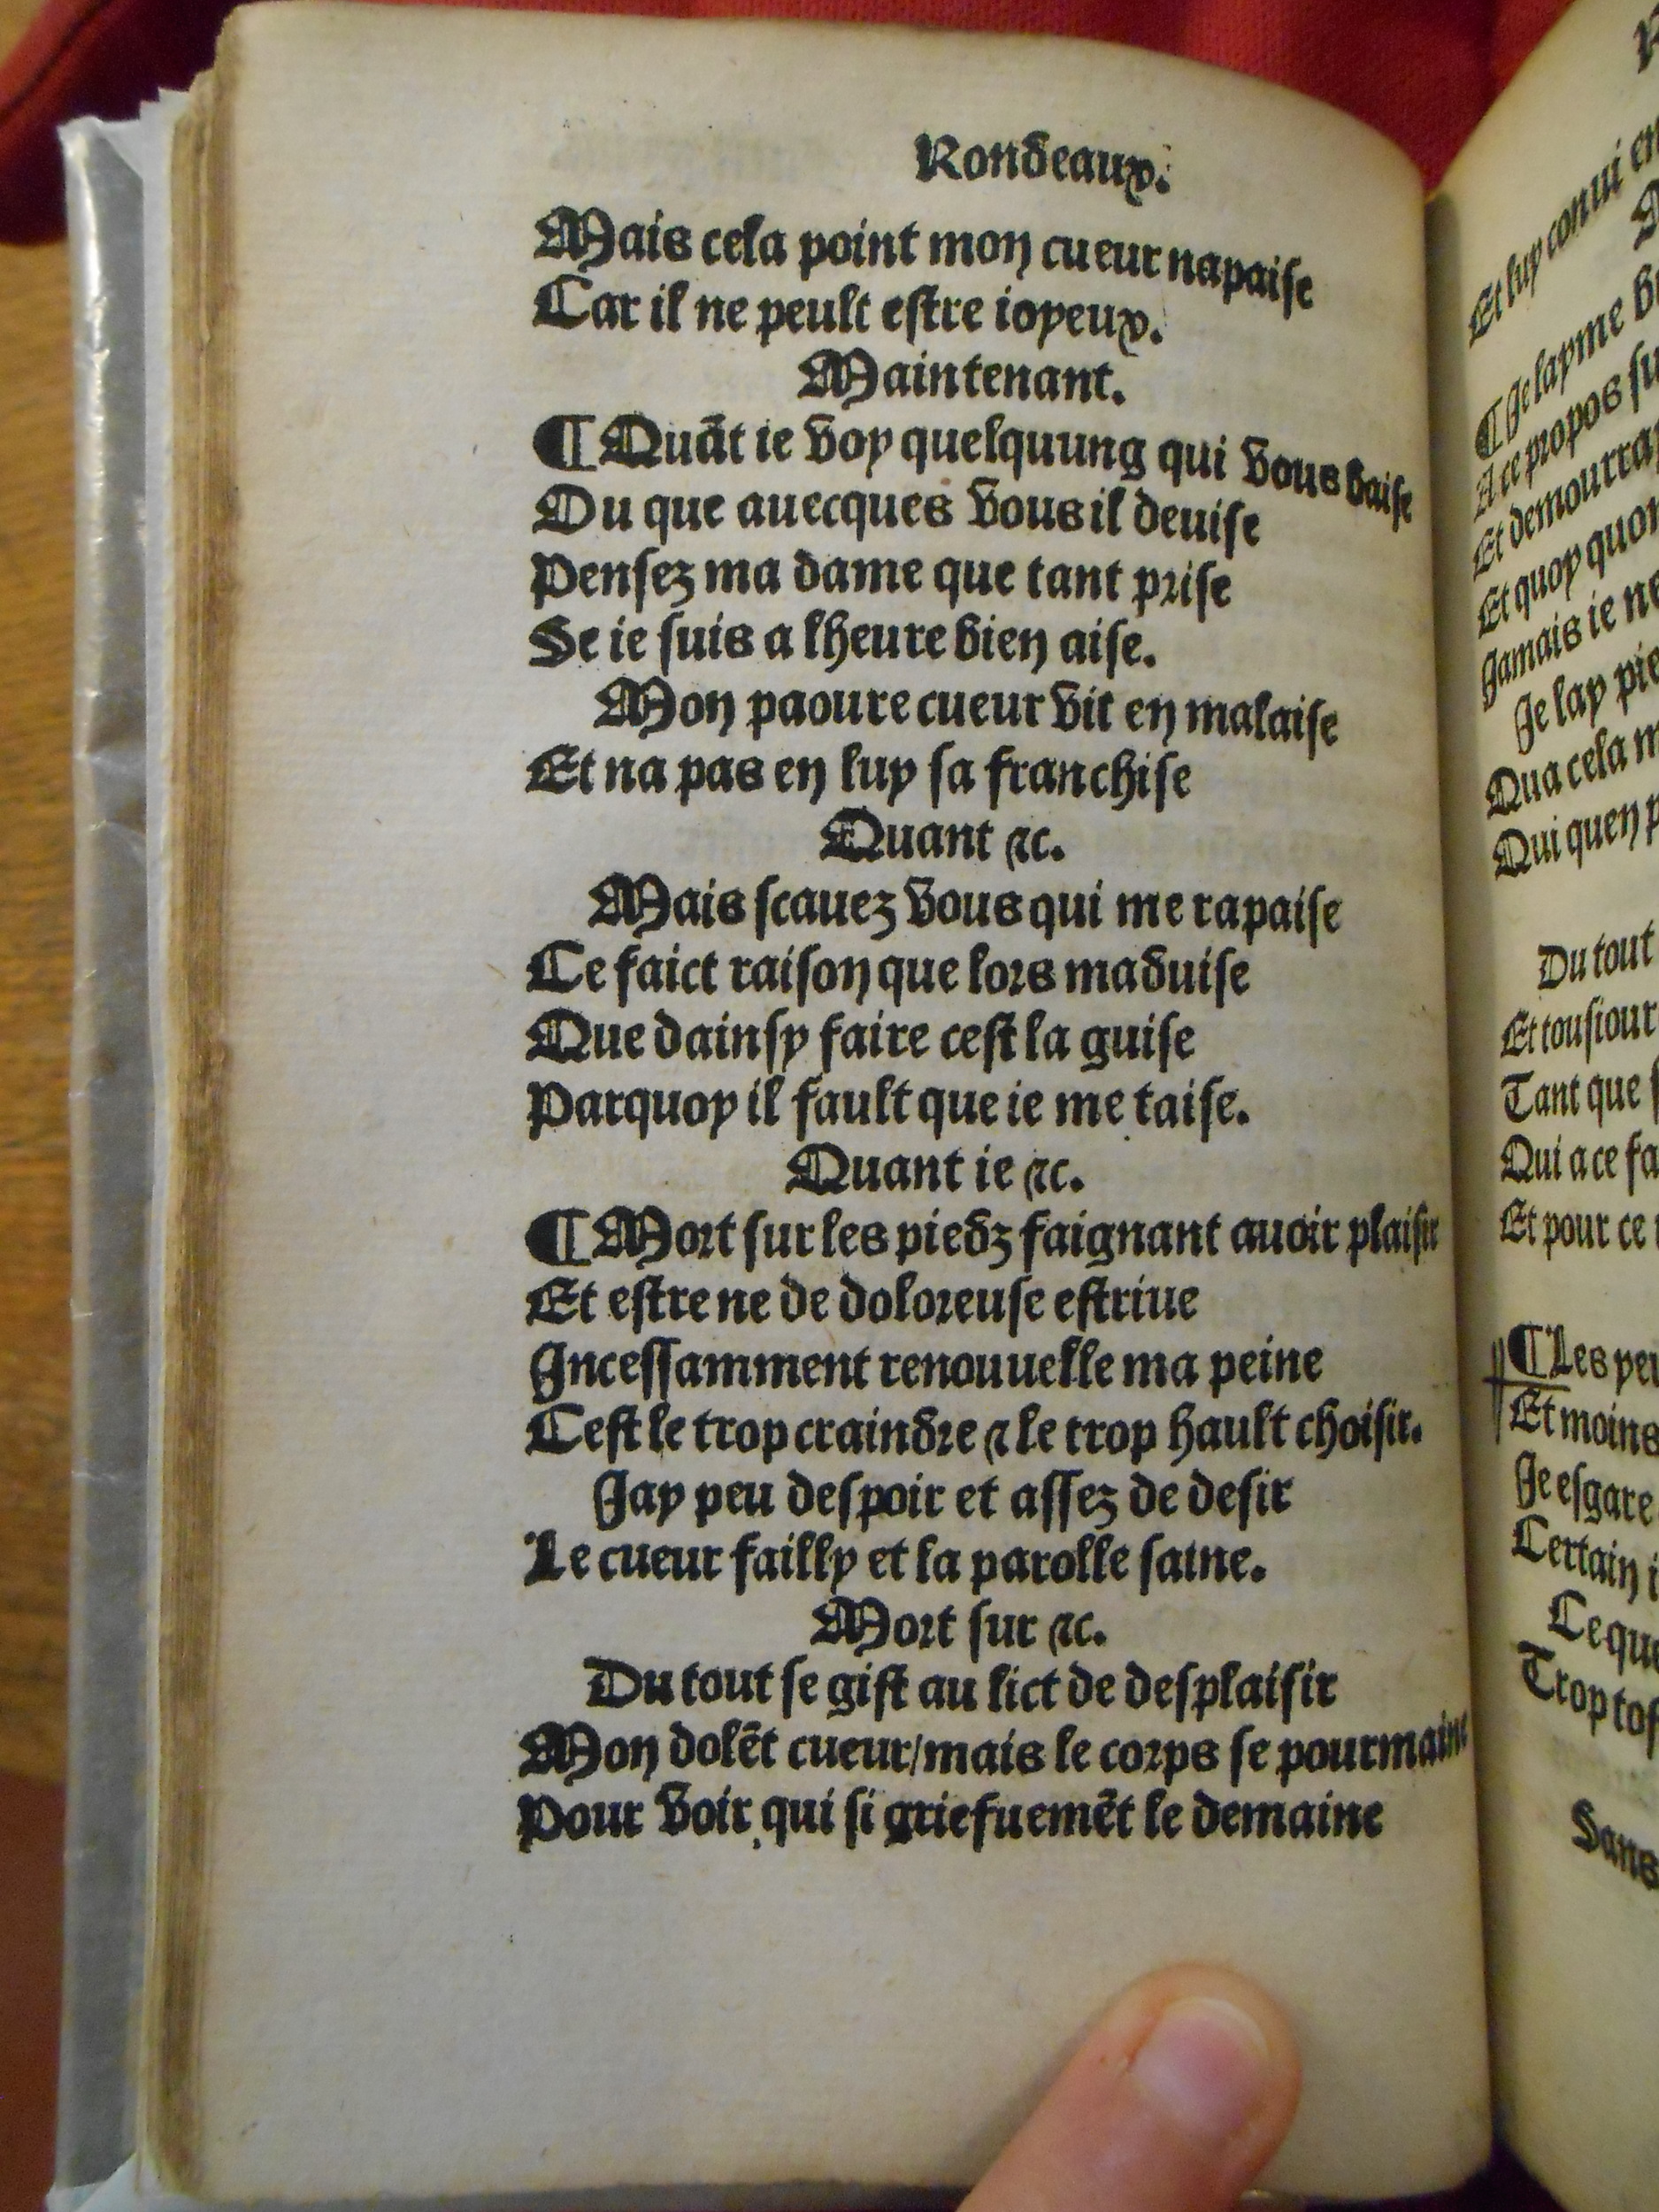 Rondeaux.
Mais cela point mon cueur napaise
Car il ne peult estre ioyeux.
Maintenant.
¶ Quãt ie voy quelquung qui vous baise
Ou que auecques vous il deuise
Pensez ma dame que tant prise
Se ie suis a lheure bien aise.
Mon paoure cueur vit en malaise
Et na pas en luy sa franchise
Quant ⁊c.
Mais scauez vous qui me rapaise
Ce faict raison que lors maduise
Que dainsy faire cest la guise
Parquoy il fault que ie me taise.
Quant ie ⁊c.
¶ Mort sur les piedz faignant auoir plaisir
Et estre ne de doloreuse estriue
Incessamment renouuelle ma peine
Cest le trop craindre ⁊ le trop hault choisir.
Jay peu despoir et assez de desir
Le cueur failly et la parolle saine.
Mort sur ⁊c.
Du tout se gist au lict de desplaisir
Mon dolẽt cueur/mais le corps se pourmaine
Pour voir qui si griefuemẽt le demaine
Et luy conui en
¶ Je layme
A ce propos
Et demourray
Et quoy quon
Jamais ie ne
Je lay
Qua cela
Qui quen
Du tout
Et tousiour
Tant que
Qui a ce
Et pour ce
¶ Les
Et moins
Je esgare
Certain
Ce que
Trop
Sans